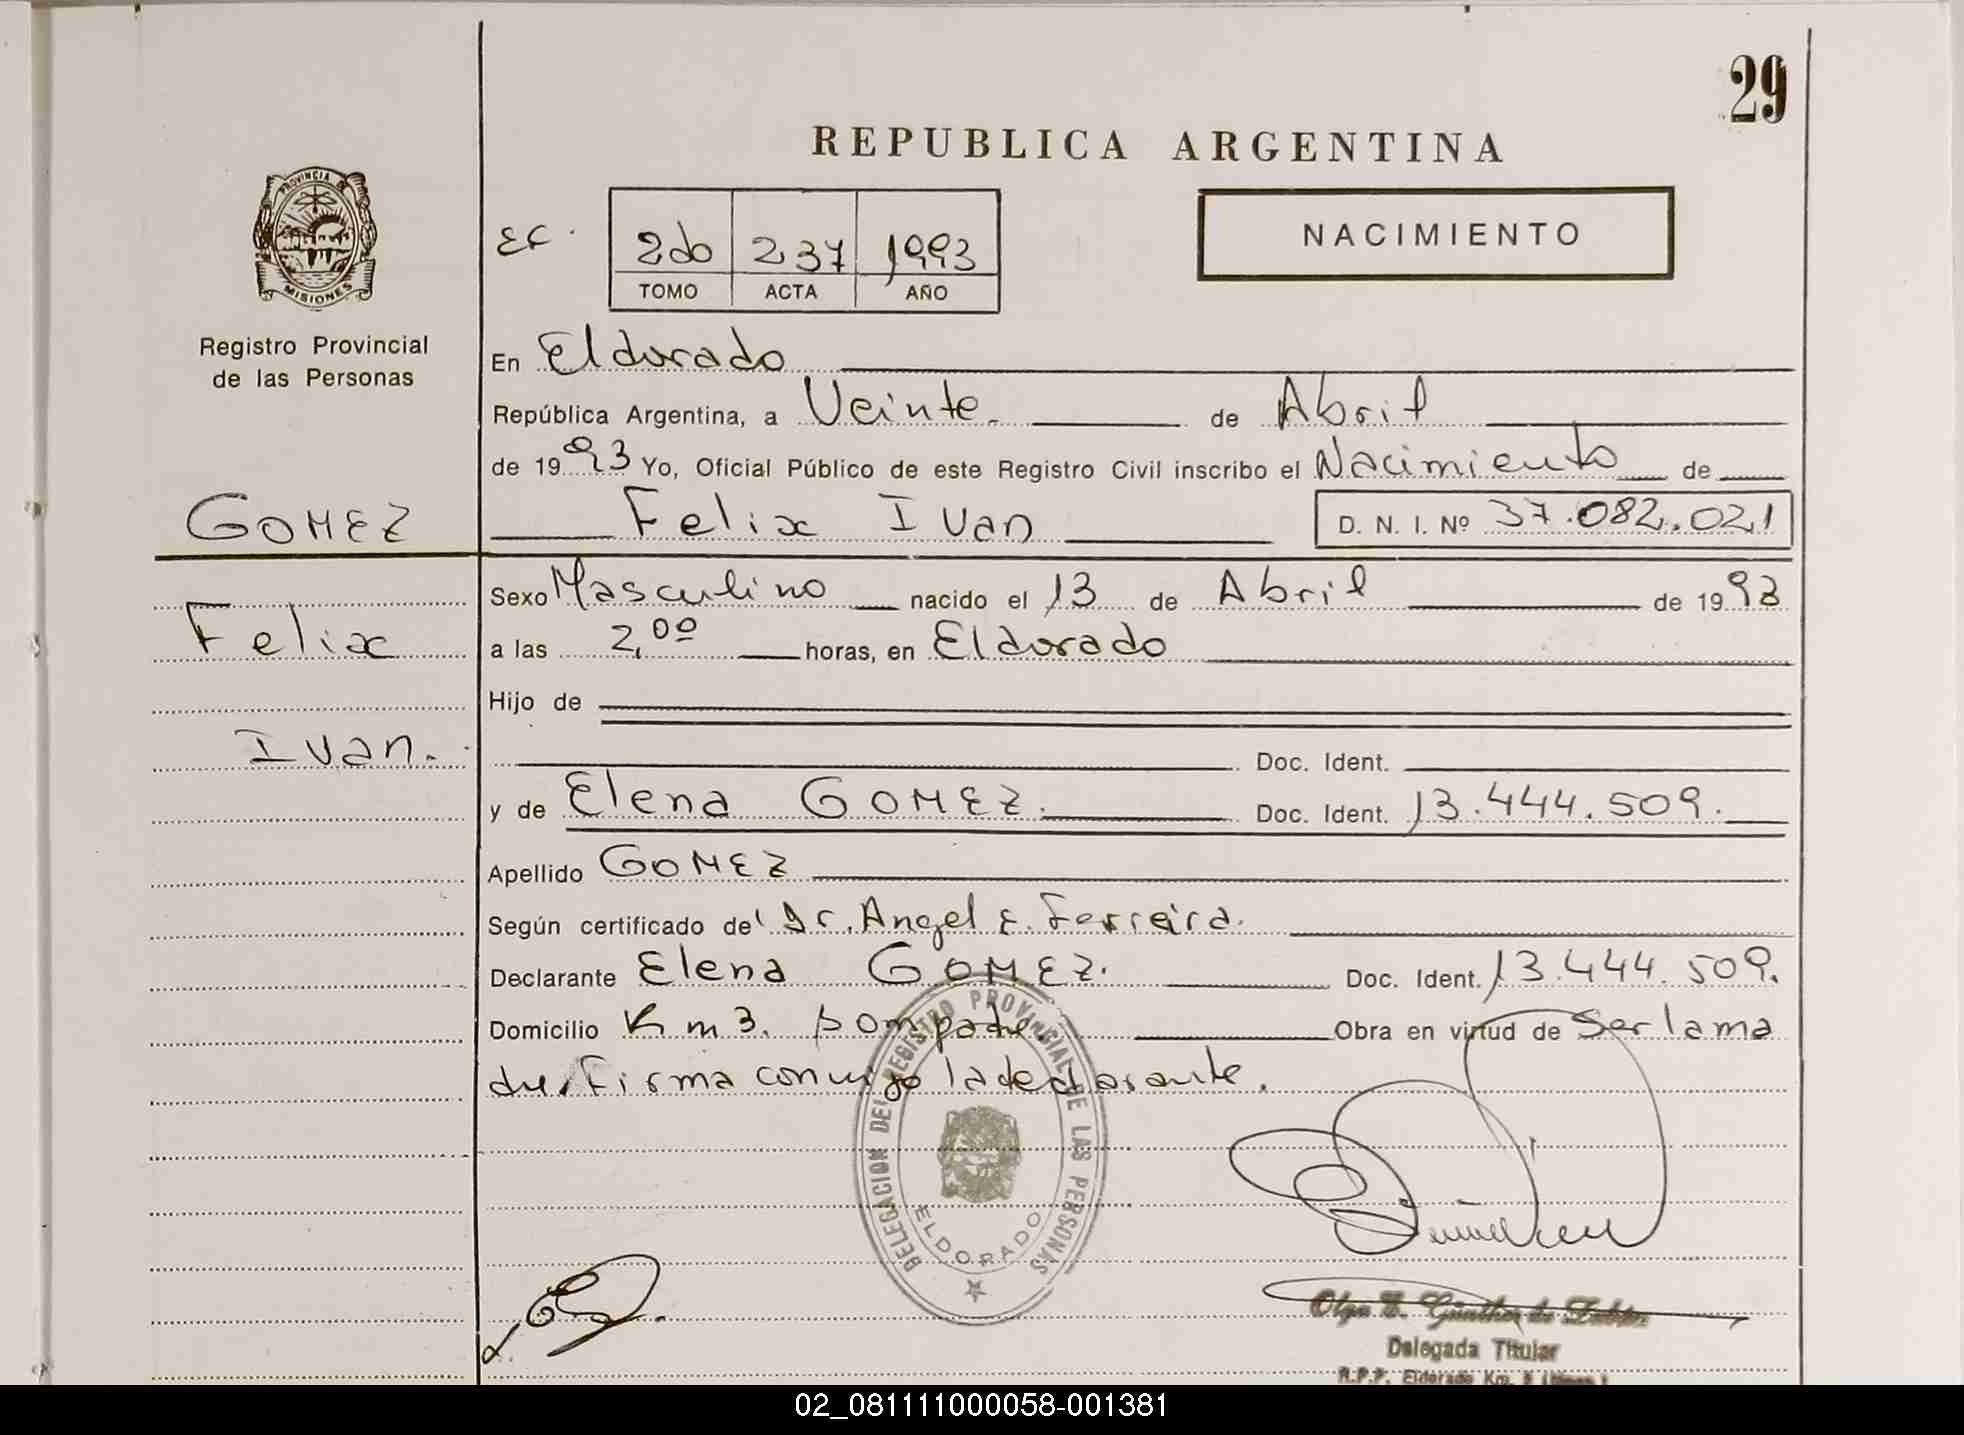 29
REPUBLICA ARGENTINA
PROVINCIA DE
MISIONES
Registro Provincial
de las Personas
NACIMIENTO
2do 237 1993
TOMO ACTA AÑO
En Eldorado
República Argentina, a Veinte. de Abril
de 1993 Yo, Oficial Público de este Registro Civil inscribo el Nacimiento de
GOMEZ
Felix Ivan D. N. I. Nº 37.082.021
Sexo Masculino nacido el 13 de Abril de 1993
Felix
a las 2,00 horas, en Eldorado
Hijo de
Ivan.
Doc. Ident.
y de Elena GOMEZ. Doc. Ident. 13.444.509.
Apellido GOMEZ
Según certificado del Dr. Angel E. Ferreira.
Declarante Elena GOMEZ. Doc. Ident. 13.444.509.
Domicilio Km 3. Obra en virtud de Ser la ma
dre, Firma conmigo la declarante.
DELEGACION DEL REGISTRO PROVINCIAL DE LAS PERSONAS
ELDORADO
Olga E. Günther de
Delegada Titular
R.P.P. Eldorado Km.
02_081111000058-001381